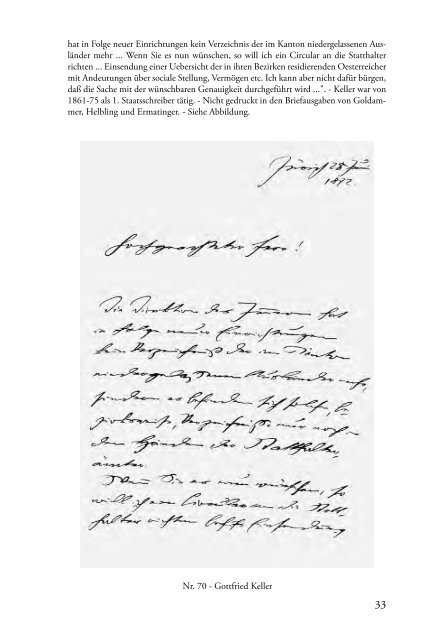 hat in Folge neuer Einrichtungen kein Verzeichnis der im Kanton niedergelassenen Aus-
länder mehr ... Wenn Sie es nun wünschen, so will ich ein Circular an die Statthalter
richten ... Einsendung einer Uebersicht der in ihren Bezirken residierenden Oesterreicher
mit Andeutungen über sociale Stellung, Vermögen etc. Ich kann aber nicht dafür bürgen,
daß die Sache mit der wünschbaren Genauigkeit durchgeführt wird ...". - Keller war von
1861-75 als 1. Staatsschreiber tätig. - Nicht gedruckt in den Briefausgaben von Goldam-
mer, Helbling und Ermatinger. - Siehe Abbildung.
Zürich 28
1872.
Hochgeachteter Herr!
Die Direktion des Innern hat
in Folge neuer Einrichtungen
kein Verzeichniß der im Kanton
niedergelassenen Ausländer mehr,
sondern es befinden sich solche, be
zirksweise, Verzeichniße nur noch
in den Händen der Statthalter,
ämter.
Wenn Sie es nun wünschen, so
will ich ein Circular an die Statt-
halter richten behufs Einsendung
Nr. 70 - Gottfried Keller
33